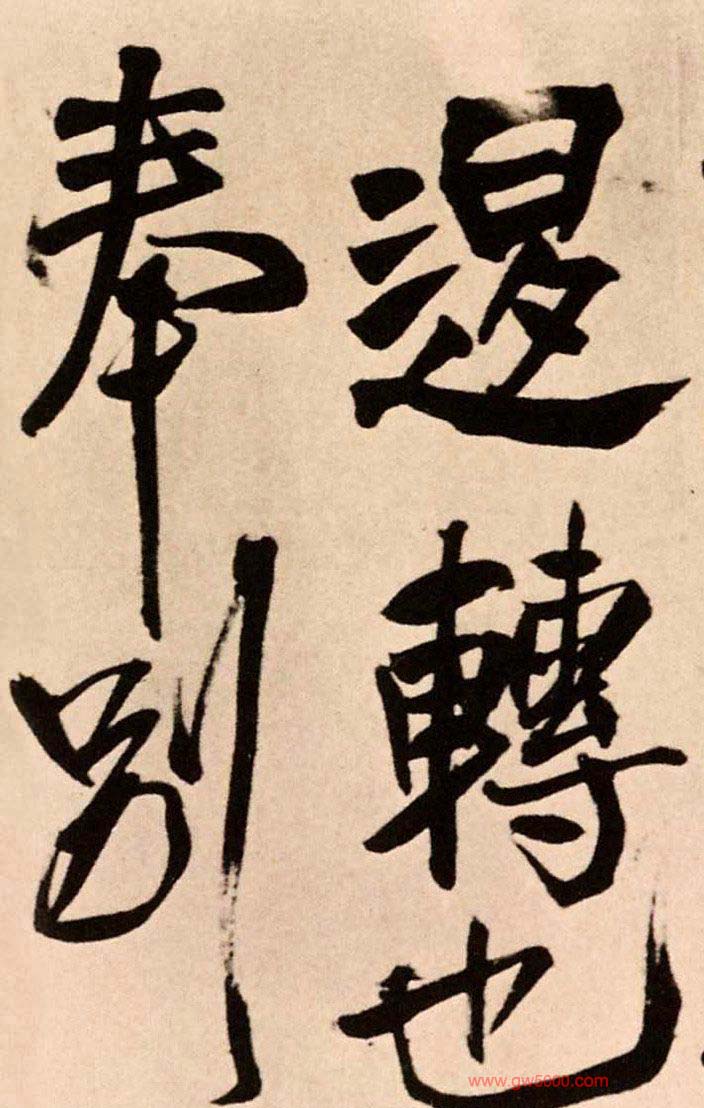 退轉也
奉別
www.gw5000.com